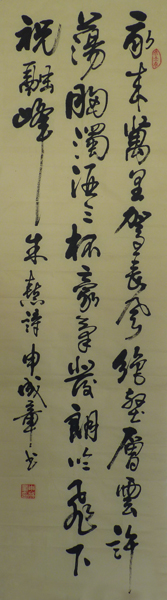 我來萬里駕長風絶壑層雲許
蕩胸濁酒三杯豪氣發朗吟飛下
祝融峰 朱熹詩 申成章書